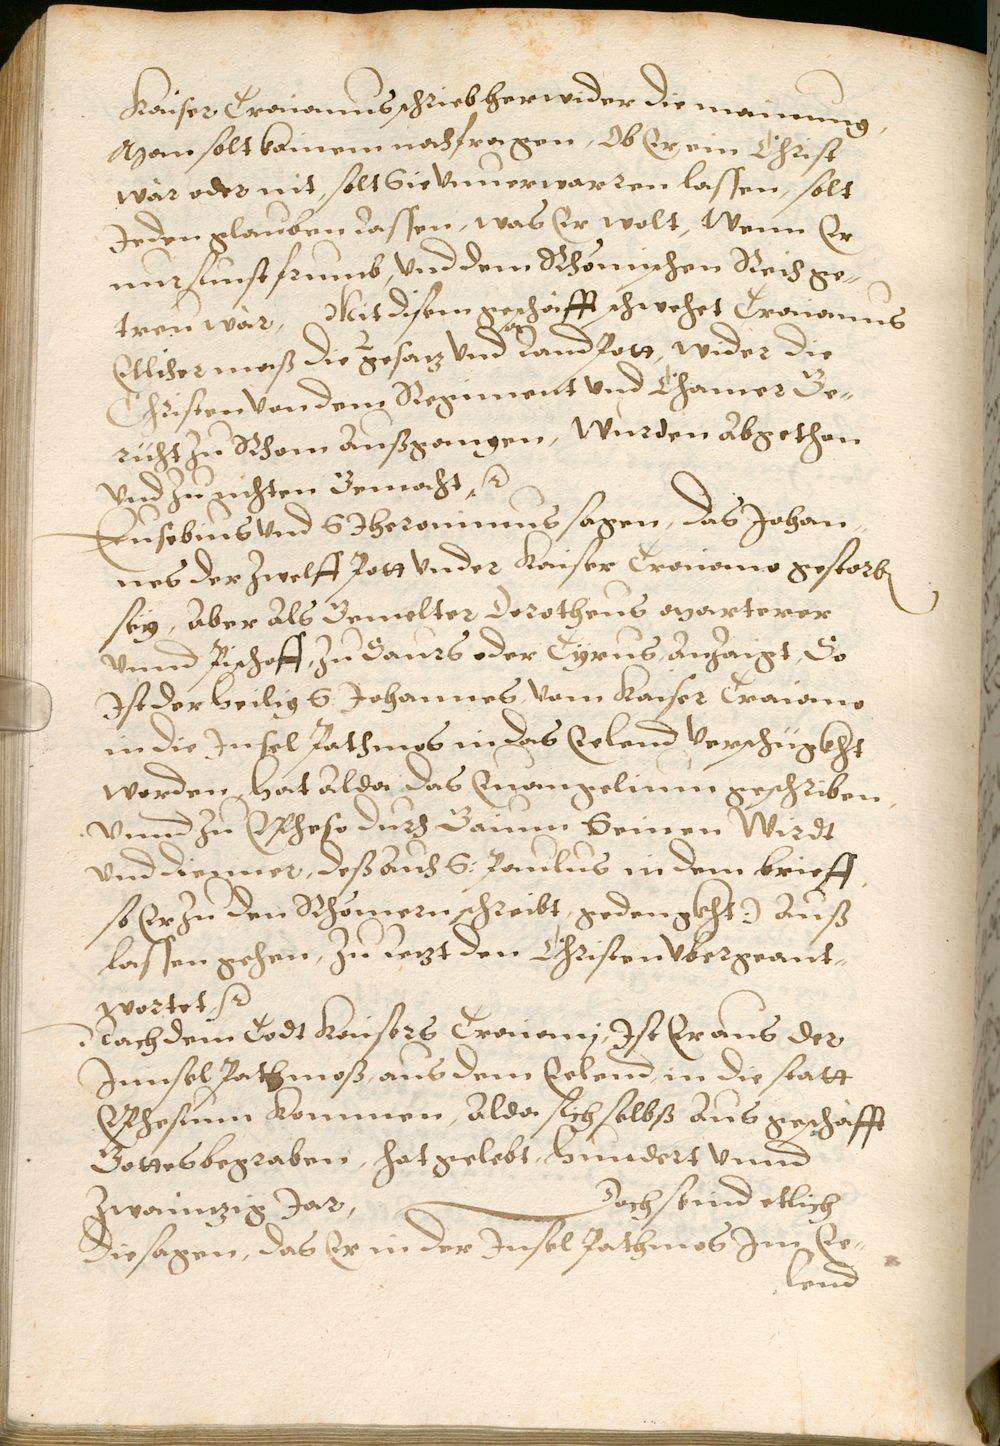 Kaiser Troianus schrieb herwider die mainung,
Man solt kainem nachfragen, Ob Er ein Christ
wär oder nit, solt Sie vnuerworren lassen, solt
Jeden glauben lassen, was Er wolt, Wenn Er
nur sunst frumb, vnd dem Rhömischen Reich ge-
treu wär, Mit disem geschäfft schwechet Troianus
Etlicher mass die gesatz vnd Landpott, wider die
Christen von dem Regiment vnd Chamer Ge-
richt zu Rhom außgangen, Wurden abgethon
vnd zu nichten Gemacht,
Eusebius vnd S Jheronimus sagen, das Johan-
nes der Zwelff Pott vnder Kaiser Troiano gestorbn
sey, Aber als Gemelter Dorotheus Marterer
vnnd Pischoff, zu Saurs oder Tyrus, Anzaigt, So
Ist der heilig S Johannes, vom Kaiser Traiano
in die Jnsel Pathmos in das Eelend verschigkht
worden, hat alda das Euangelium geschriben,
vnnd zu Epheso durch Gaium Seinen Wirdt
vnd diennner, deß auch S: Paulus in dem brieff,
so Er zu den Rhömern schreibt, gedengkht:) Auß
lassen gehen, zu letzt den Christen vbergeant-
wortet
Nach dem Todt Kaisers Troianj, Ist Er aus der
Jnnsel Pathmoß, aus dem Eelend, in die statt
Ephesum kommen, alda sich selbß aus geschäfft
Gottes begraben, hat gelebt, hundert vnnd
Zwaintzig Jar, Doch seind etlich
die sagen, das Er in der Jnsel Pathmos Jm Ee-
lend